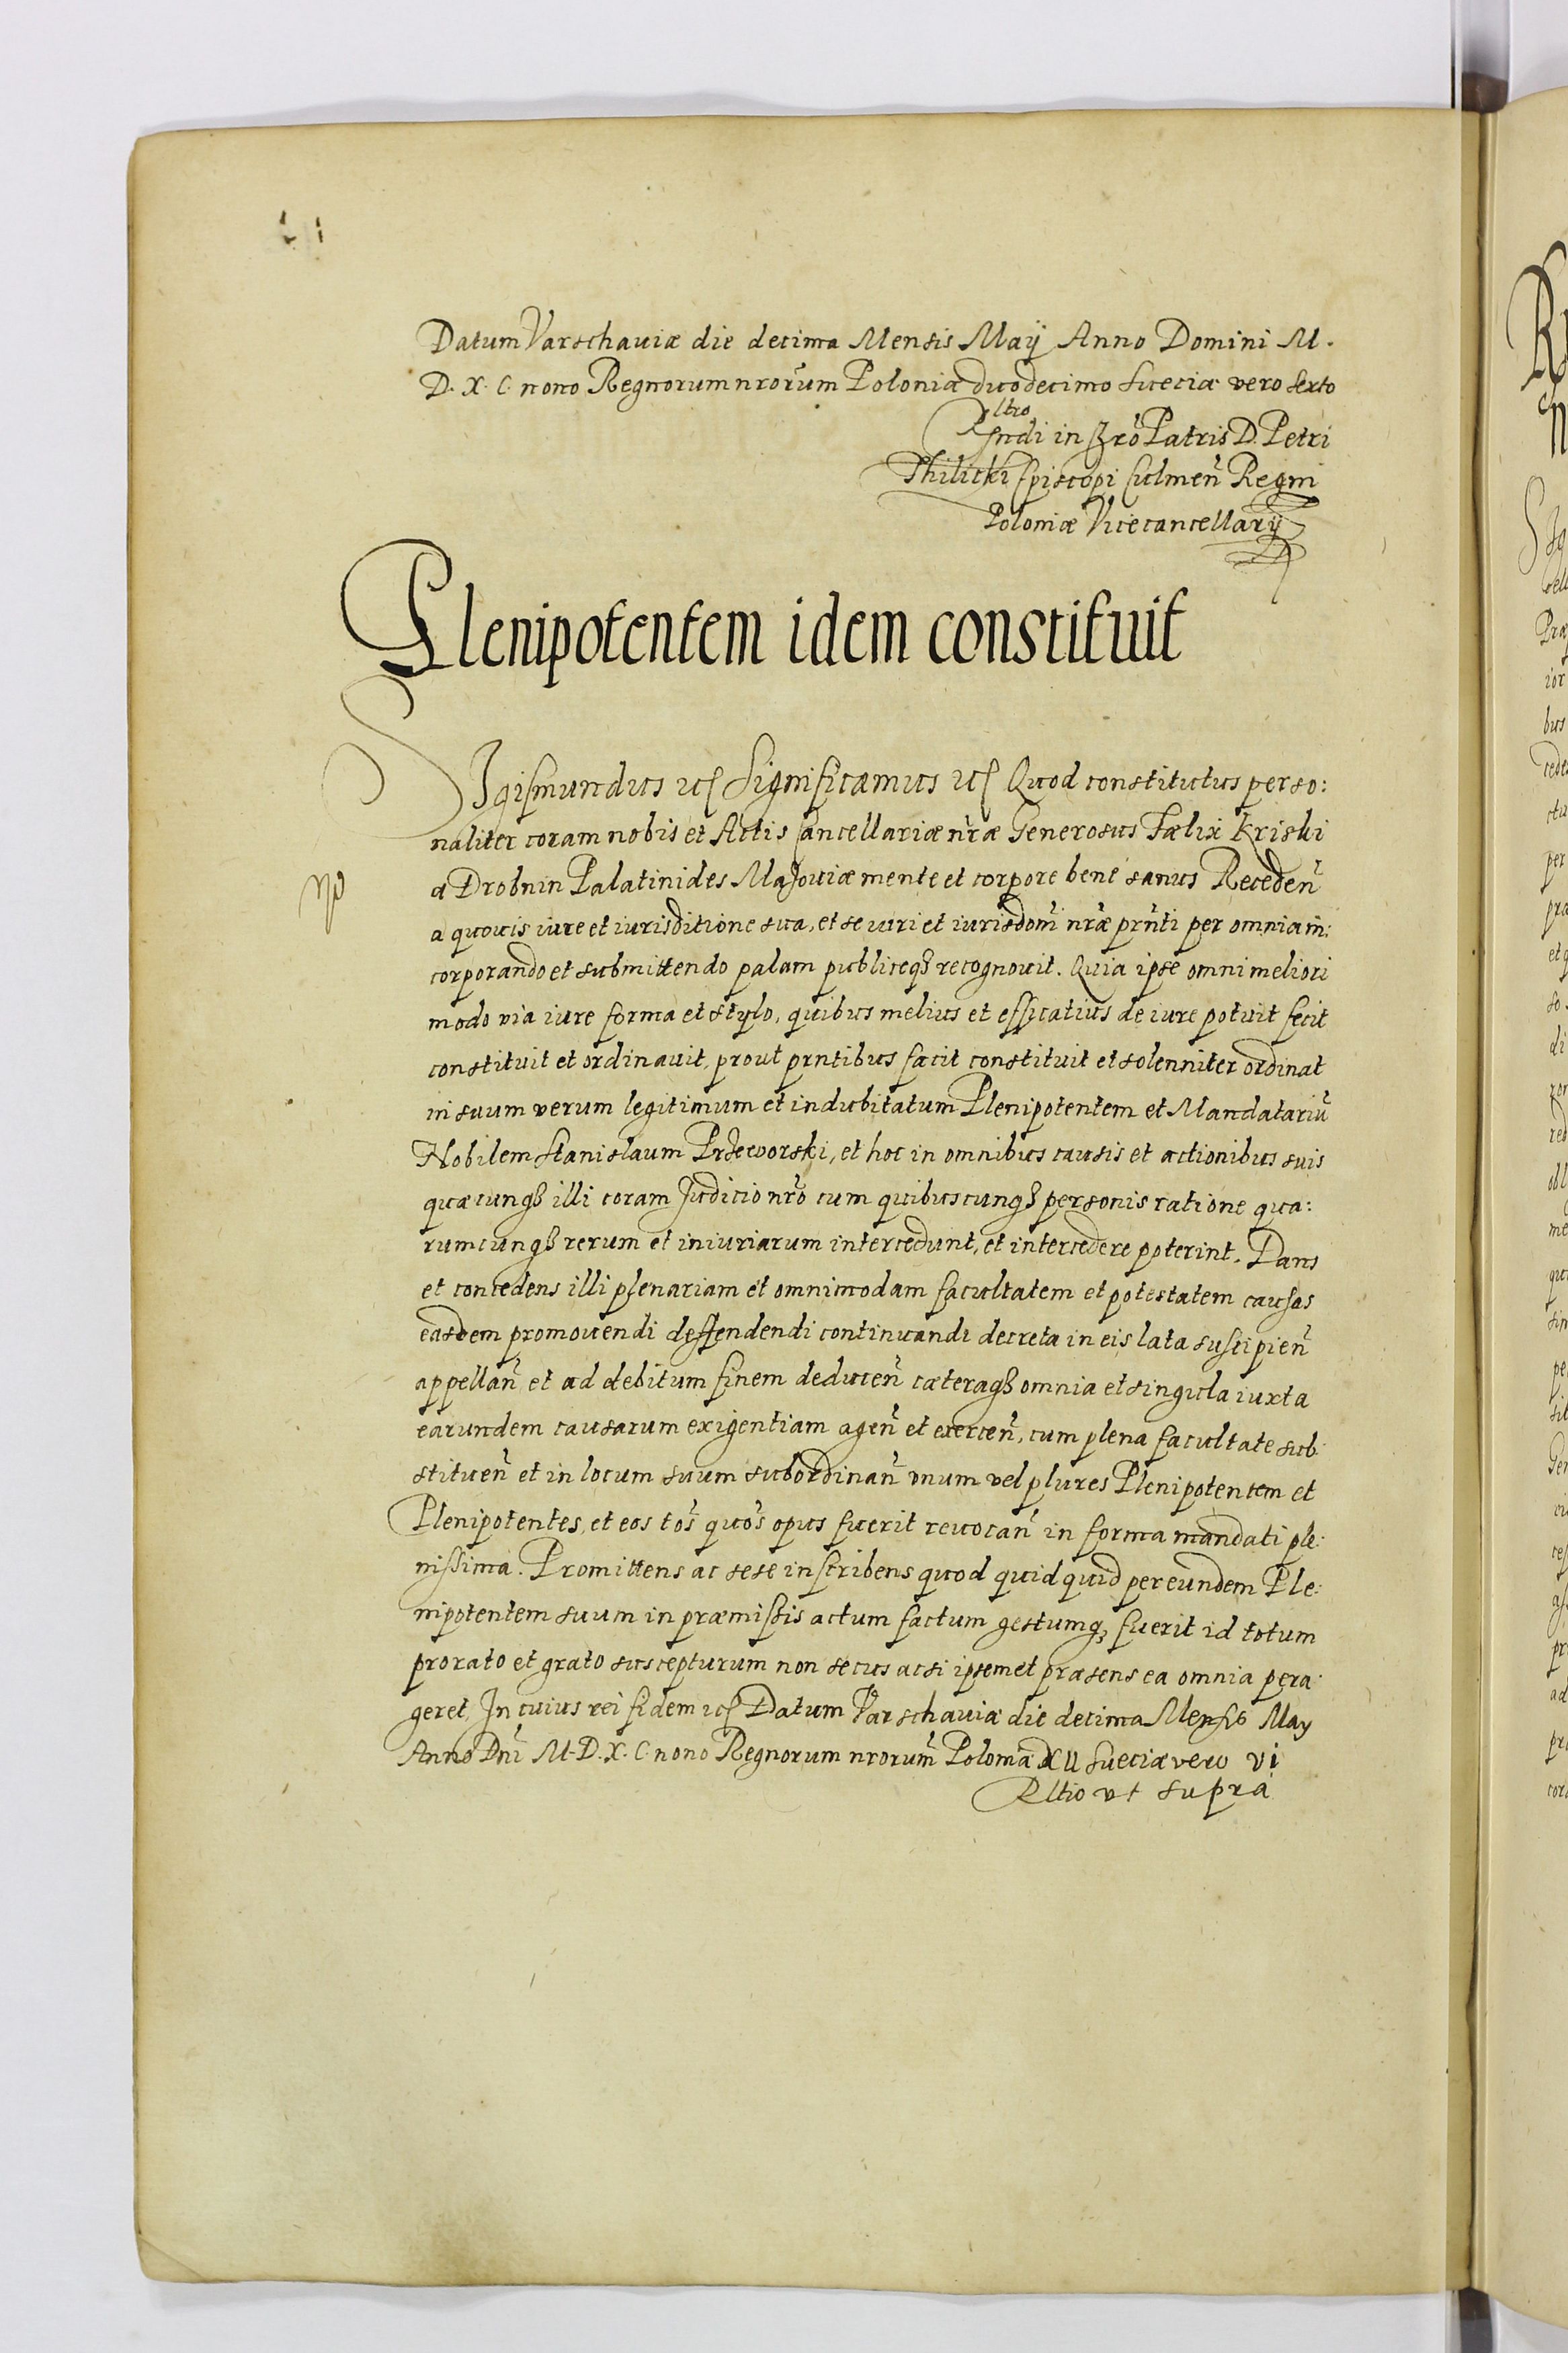 Datum Varschauiæ die decima Mensis Maij Anno Domini M.
D. X. C. nono Regnorum nrorum Poloniæ duodecimo Sueciæ vero sexto
Rltio
Rndi in Xro Patris D. Petri
Thilicki Episcopi Culmen Regni
Poloniæ Vicecancellarij
Plenipotentem idem constituit
SIgismundus etc Significamus etc Quod constitutus perso:
naliter coram nobis et Actis Cancellariæ nræ Generosus Fælix Kriski
a Drobnin Palatinides Masouiæ mente et corpore bene sanus Receden
a quouis iure et iurisditione sua, et se iuri et iurisdoni nræ prnti per omnia in:
corporando et submittendo palam publiceqz recognouit. Quia ipse omni meliori
modo via iure forma et stylo, quibus melius et efficatius de iure potuit fecit
constituit et ordinauit, prout prntibus facit constituit et solenniter ordinat
in suum verum legitimum et indubitatum Plenipotentem et Mandatariu
Nobilem Stanislaum Przeworski, et hoc in omnibus causis et actionibus suis
quæcunqz illi coram Judicio nro cum quibuscunqz personis ratione qua:
rumcunqz rerum et iniuriarum intercedunt, et intercedere poterint. Dans
et concedens illi plenariam et omnimodam facultatem et potestatem causas
easdem promouendi deffendendi continuandi decreta in eis lata suscipien
appellan et ad debitum finem deducen cæteraqz omnia et singula iuxta
earundem causarum exigentiam agen et exercen, cum plena facultate sub:
stituen et in locum suum subordinan vnum vel plures Plenipotentem et
Plenipotentes, et eos tos quos opus fuerit reuocan in forma mandati ple:
nissima. Promittens ac sese inscribens quod quidquid per eundem Ple:
nipotentem suum in præmissis actum factum gestumqz fuerit id totum
pro rato et grato suscepturum non secus ac si ipsemet præsens ea omnia pera:
geret, In cuius rei fidem etc Datum Varschauiæ die decima Mensis May
Anno Dni M. D. X. C. nono Regnorum nrorum Poloniæ XII Sueciæ vero vi
Rltio vt supra